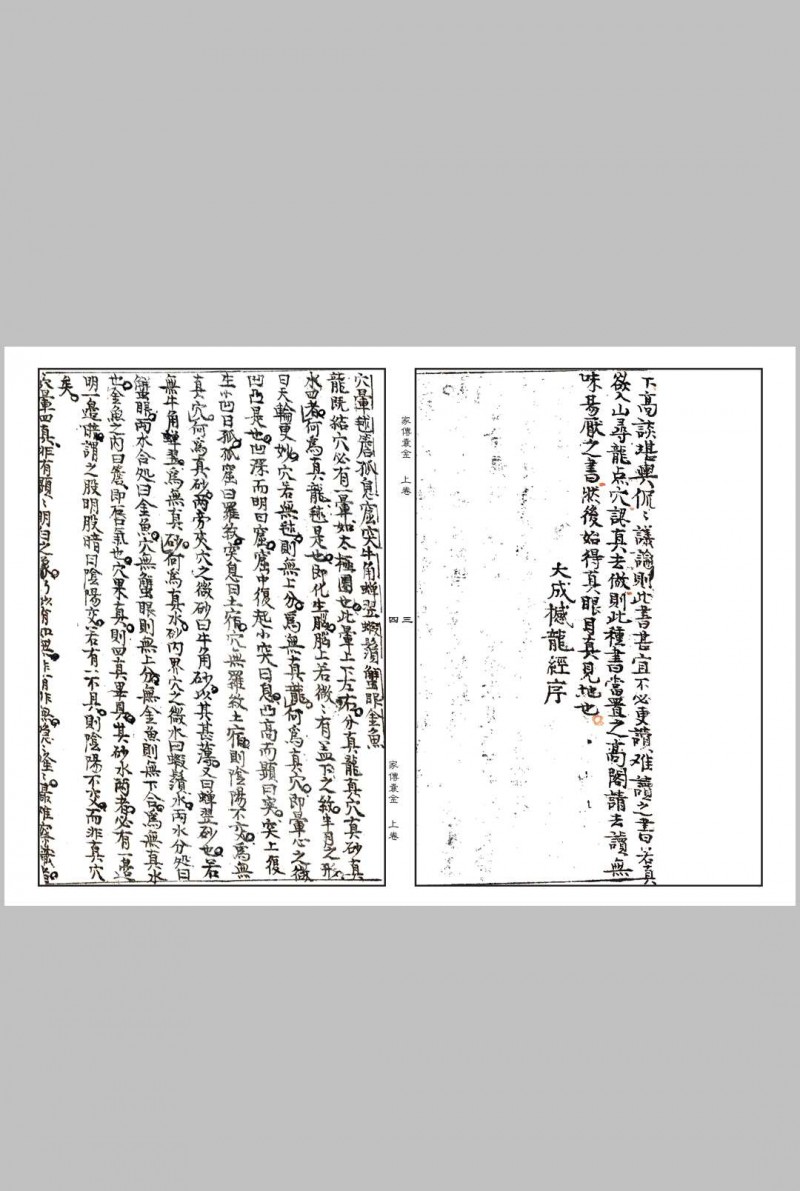 下高談堪輿侃〻議論則此書甚宜不必更讀难讀之書曰若真
欲入山尋龍点穴認真去做則此種書當置之高閣請去讀無
味易厭之書然後始得真眼目真見地也
大成撼龍經序
三
家傳彙金 上卷
四
家傳彙金 上卷
穴暈毬簷孤息窟突牛角蟬翌蝦鬚蟹眼金魚
龍既結穴必有一暈如太極圈也此暈上下左右分真龍真穴真砂真
水四者何為真龍毬是也即化生腦腦上若微〻有盖下之紋半月之形
曰天輪更妙穴若無毬則無上分為無真龍何為真穴即暈心之微
凹凸是也凹深而明曰窟窟中復起小突曰息凸高而顯曰突突上復
生小凹曰孤孤窟曰羅紋突息曰土宿穴無羅紋土宿則陰陽不交為無
真穴何為真砂兩旁夾穴之微砂曰牛角砂以其甚薄又曰蟬翌砂也若
無牛角蟬翌為無真砂何為真水砂內界穴之微水曰蝦鬚水兩水分処曰
蟹眼兩水合処曰金魚穴無蟹眼則無上分無金魚則無下合為無真水
也金魚之內曰簷即唇氣也穴果真則四真畢具其砂水兩者必有一邊
明一邊暗謂之股明股暗曰陰陽交若有一不具則陰陽不交而非真穴
矣
穴暈四真非有顯〻明白之象